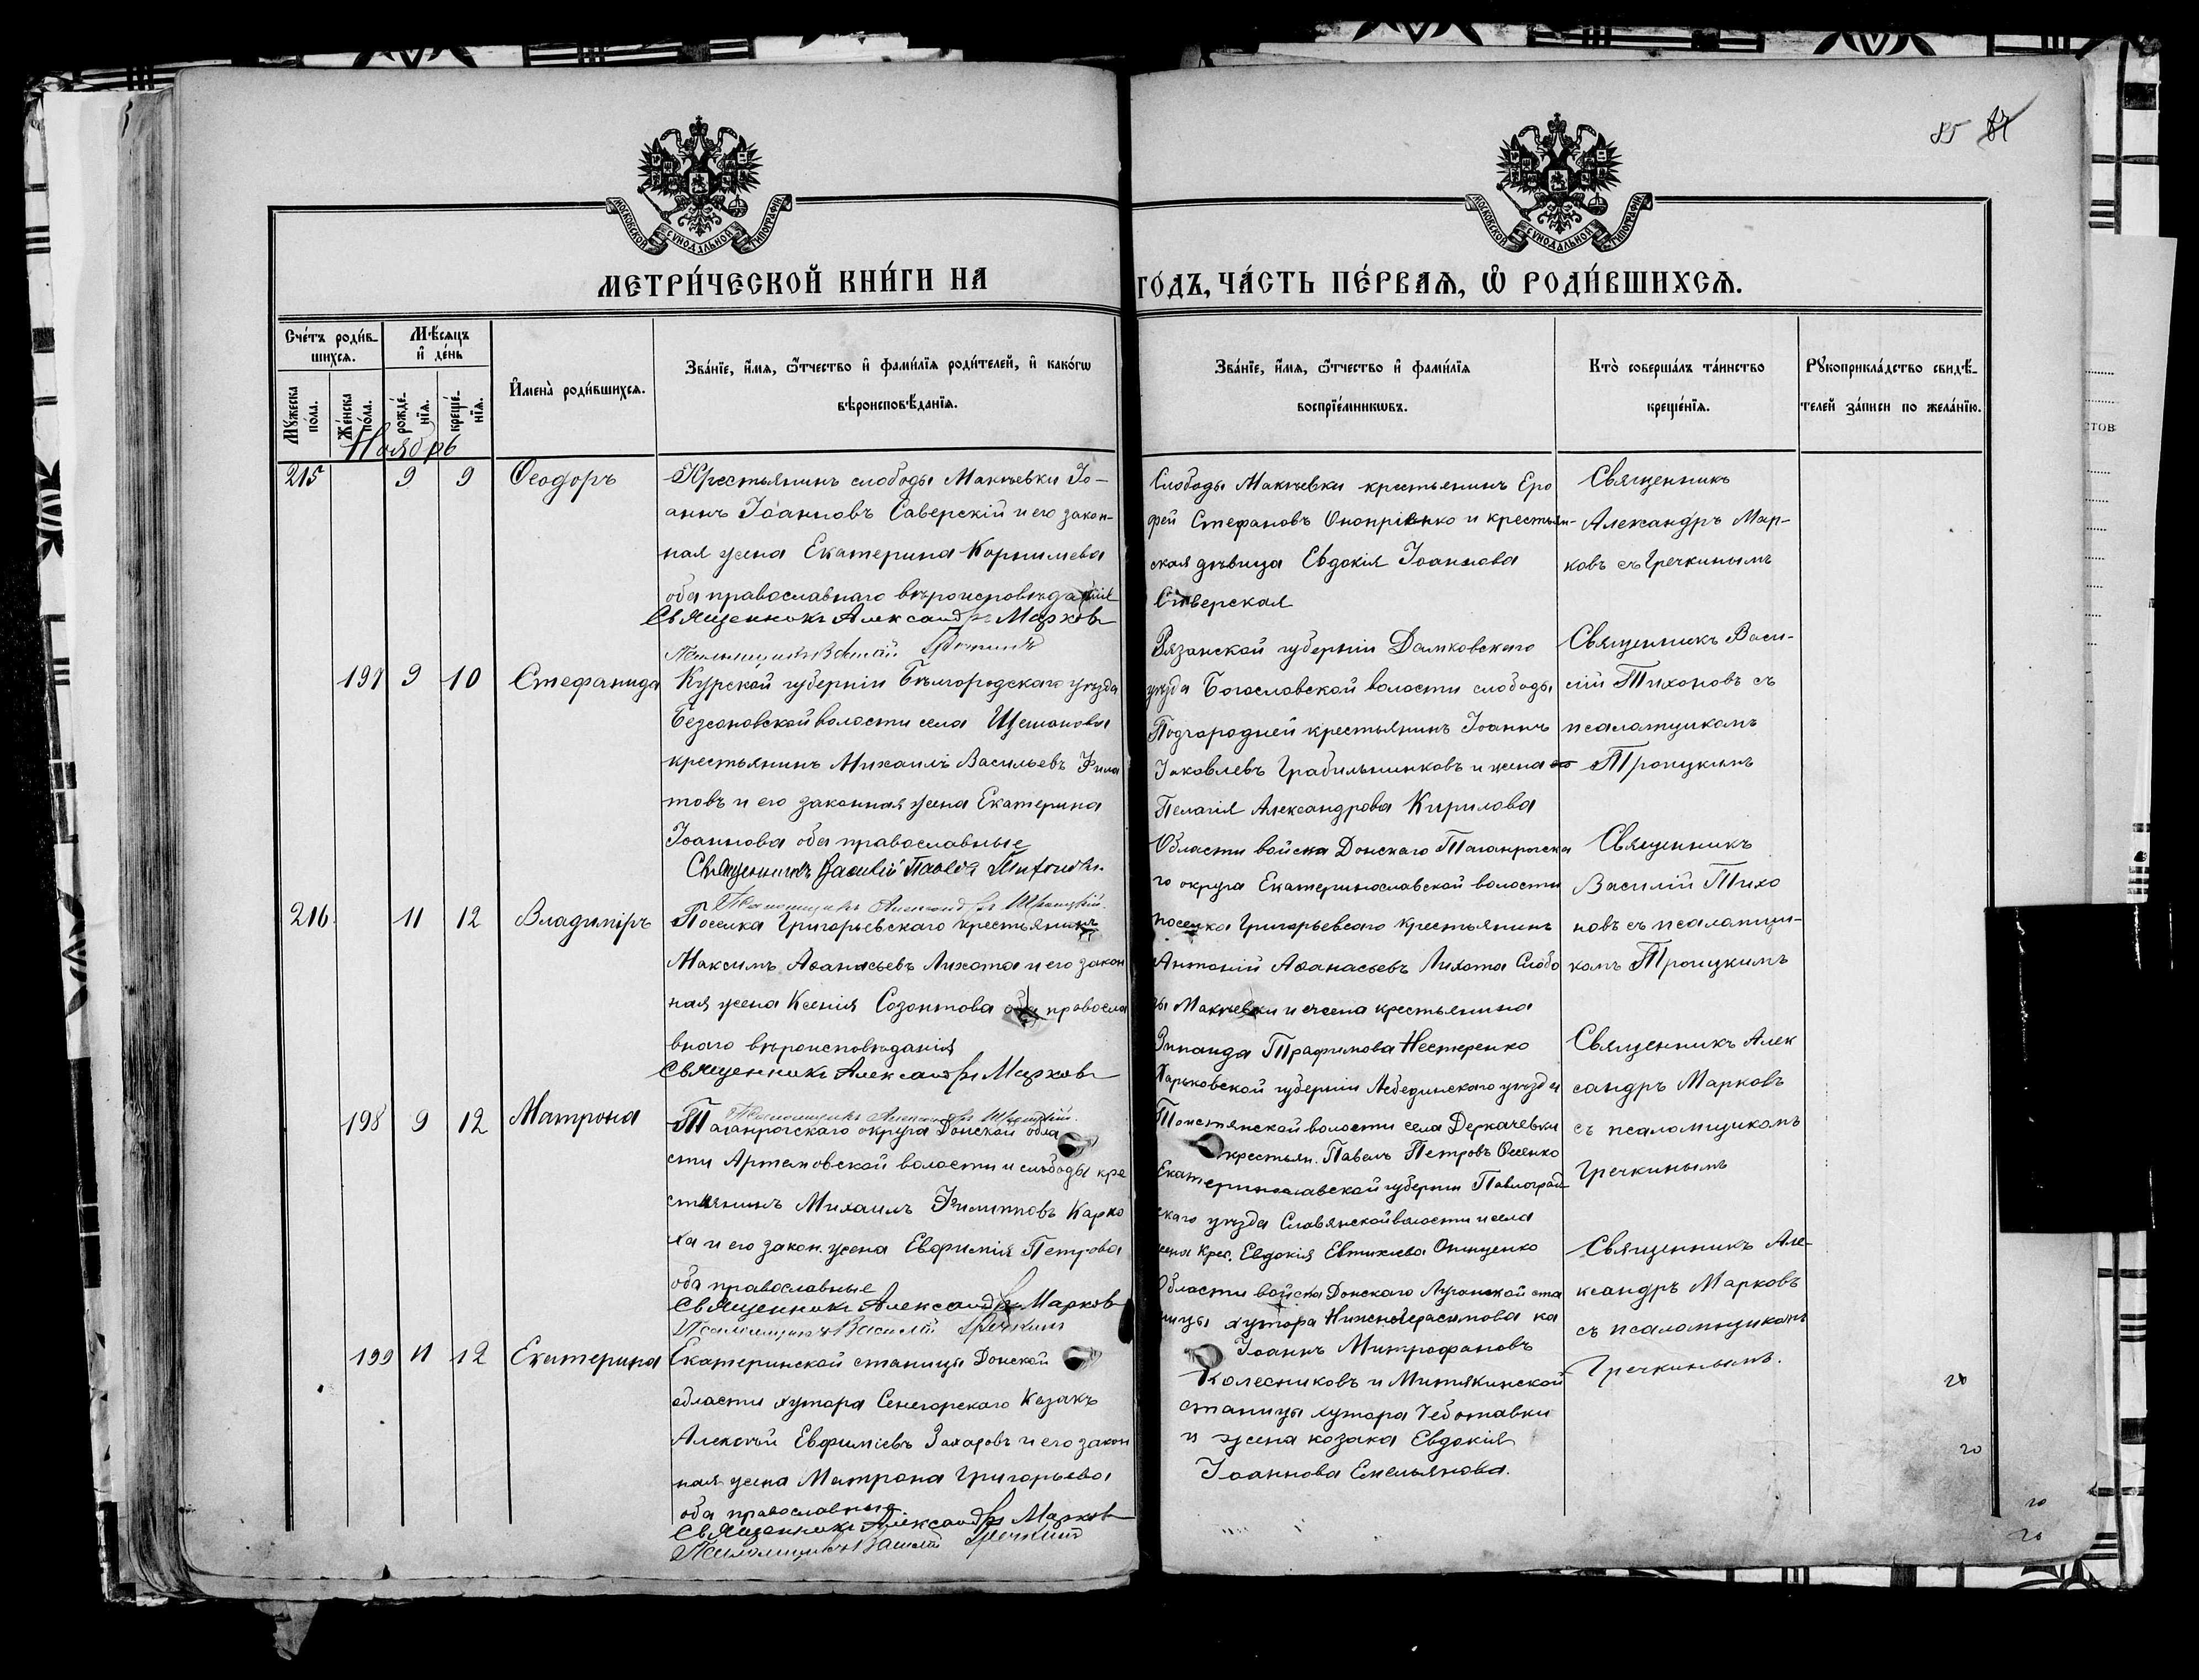 85
МОСКОВСКОЙ СѴНОДАЛЬНОЙ ТИПОГРАФІИ
МОСКОВСКОЙ СѴНОДАЛЬНОЙ ТИПОГРАФІИ
МЕТРИ́ЧЕСКОЙ КНИ́ГИ НА ГО́ДЪ, ЧА́СТЬ ПЕ́РВАѦ, Ѡ҆ РОДИ́ВШИХСѦ.
Сче́тъ роди́в-
шихсѧ.
Мѣ́сѧцъ
и҆ де́нь
Мꙋ́жеска
по́ла.
Же́нска
по́ла.
рожде́-
нїѧ.
креще́-
нїѧ.
И҆мена̀ роди́вшихсѧ.
Зва́нїе, и҆́мѧ, ѻ҆́тчество и҆ фами́лїѧ роди́телей, и҆ како́гѡ
вѣроисповѣ́данїѧ.
Зва́нїе, и҆́мѧ, ѻ҆́тчество и҆ фами́лїѧ
воспрїе́мникѡвъ.
Кто̀ соверша́лъ та́инство
креще́нїѧ.
Рꙋкоприкла́дство свидѣ́-
телей за́писи по жела́нїю.
Ноябрь
215 9 9 Ѳеодоръ
Крестьянинъ слободы Макѣевки Іо-
аннъ Іоанновъ Саверскій и его закон-
ная жена Екатерина Корнилиева
оба православнаго вѣроисповѣданія
Священникъ Александръ Марковъ
Псаломщикъ Василій Гречкинъ
Слободы Макѣевки крестьянинъ Еро
фей Стефановъ Оноприенко и крестьян-
ская дѣвица Евдокія Іоаннова
Саверская
Священникъ
Александръ Мар-
ковъ съ Гречкинымъ
197 9 10 Стефанида
Курской губерніи Бѣлгородскаго уѣзда
Безсоновской волости села
крестьянинъ Михаилъ Васильевъ Фила
товъ и его законная жена Екатерина
Іоаннова оба православные
Священникъ Василій Павловъ Тихоновъ.
Псаломщикъ Александръ Троицкій.
Рязанской губерніи Данковскаго
уѣзда Богословской волости слободы
Подгородней крестьянинъ Іоаннъ
Іаковлевъ Грабильниковъ и жена его
Пелагія Александрова Кирилова
Священникъ Васи-
лій Тихоновъ съ
псаломщикомъ
Троицкимъ
216 11 12 Владиміръ
Поселка Григорьевскаго крестьянинъ
Максимъ Аѳанасьевъ Лихота и его закон
ная жена Ксенія Созонтова оба правосла
внаго вѣроисповѣданія
Священникъ Александръ Марковъ
Псаломщикъ Александръ Троицкій
Области войска Донскаго Таганрогска
го округа Екатеринославской волости
поселка Григорьевсаго крестьянинъ
Антоній Аѳанасьевъ Лихота Слобо
ды Макѣевки и жена крестьянина
Зинаида Трафимова Нестеренко
Священникъ
Василій Тихо
новъ съ псаломщи-
комъ Троицкимъ
198 9 12 Матрона
Таганрогскаго округа Донской обла
сти Артемовской волости и слободы кре
стьянинъ Михаилъ Филипповъ Карко
ха и его закон. жена Евфимія Петрова
оба православные
Священникъ Александръ Марковъ
Псаломщикъ Василій Гречкинъ
Харьковской губерніи Лебединскаго уѣзда
волости села Деркачевки
крестьян. Павелъ Петровъ
Екатеринославской губерніи Павлоград
скаго уѣзда Славянской волости и села
жена Крес. Евдокія Евтихиева Онищенко
Священникъ Алек
сандръ Марковъ
съ псаломщикомъ
Гречкинымъ
199 11 12 Екатерина
Екатеринской станицы Донской
области хутора Сенегорскаго Казакъ
Алексѣй Евфиміевъ Захаровъ и его закон
ная жена Матрона Григорьева
оба православные
Священникъ Александръ Марковъ
Псаломщикъ Василій Гречкинъ
Области войска Донскаго Луганской ста
ницы хутора Нижнегерасимова ка
Іоаннъ Митрофановъ
Колесниковъ и Митякинской
станицы хутора Чеботавки
и жена козака Евдокія
Іоаннова Емельянова.
Священникъ Але-
ксандръ Марковъ
съ псаломщикомъ
Гречкинымъ.
20
20
20
20